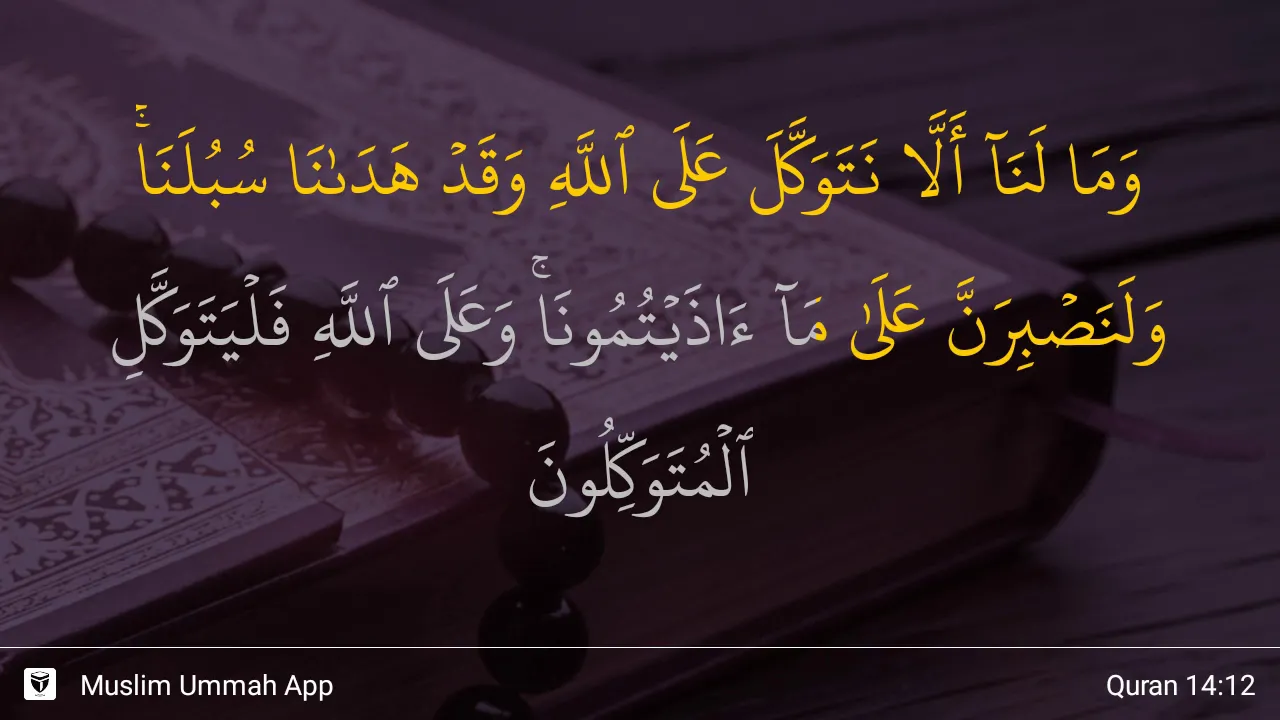 وَمَا لَنَآ أَلَّا نَتَوَكَّلَ عَلَى ٱللَّهِ وَقَدۡ هَدَىٰنَا سُبُلَنَاۚ
وَلَنَصۡبِرَنَّ عَلَىٰ مَآ ءَاذَيۡتُمُونَاۚ وَعَلَى ٱللَّهِ فَلۡيَتَوَكَّلِ
ٱلۡمُتَوَكِّلُونَ
Muslim Ummah App
Quran 14:12